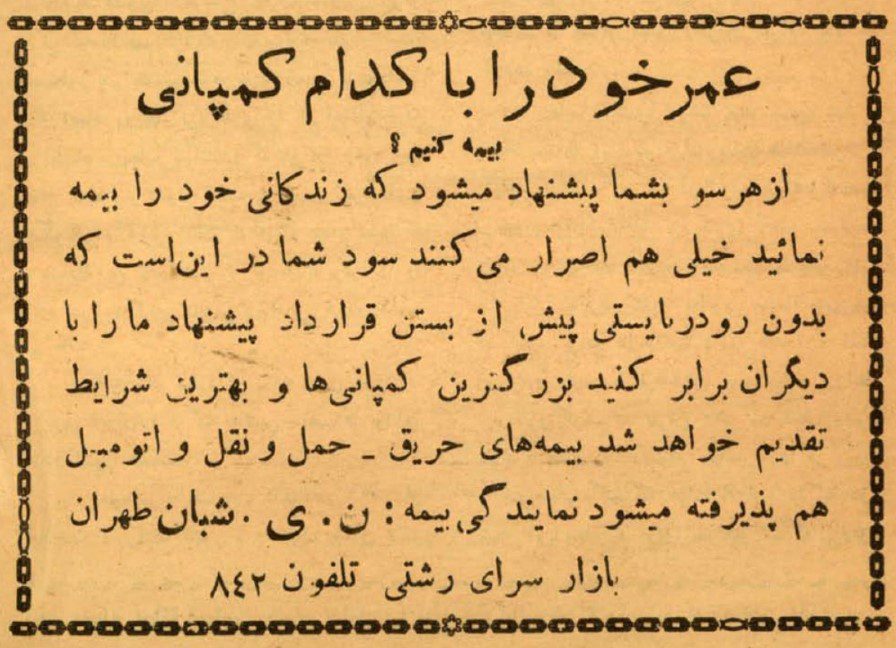 عمر خود را با کدام کمپانی
بیمه کنیم ؟
از هر سو بشما پیشنهاد میشود که زندگانی خود را بیمه
نمائید خیلی هم اصرار می کنند سود شما در این است که
بدون رودربایستی پیش از بستن قرارداد پیشنهاد ما را با
دیگران برابر کنید بزرگترین کمپانی‌ها و بهترین شرایط
تقدیم خواهد شد بیمه‌های حریق ـ حمل و نقل و اتومبیل
هم پذیرفته میشود نمایندگی بیمه : ن . ی . شبان طهران
بازار سرای رشتی تلفون ۸۴۲